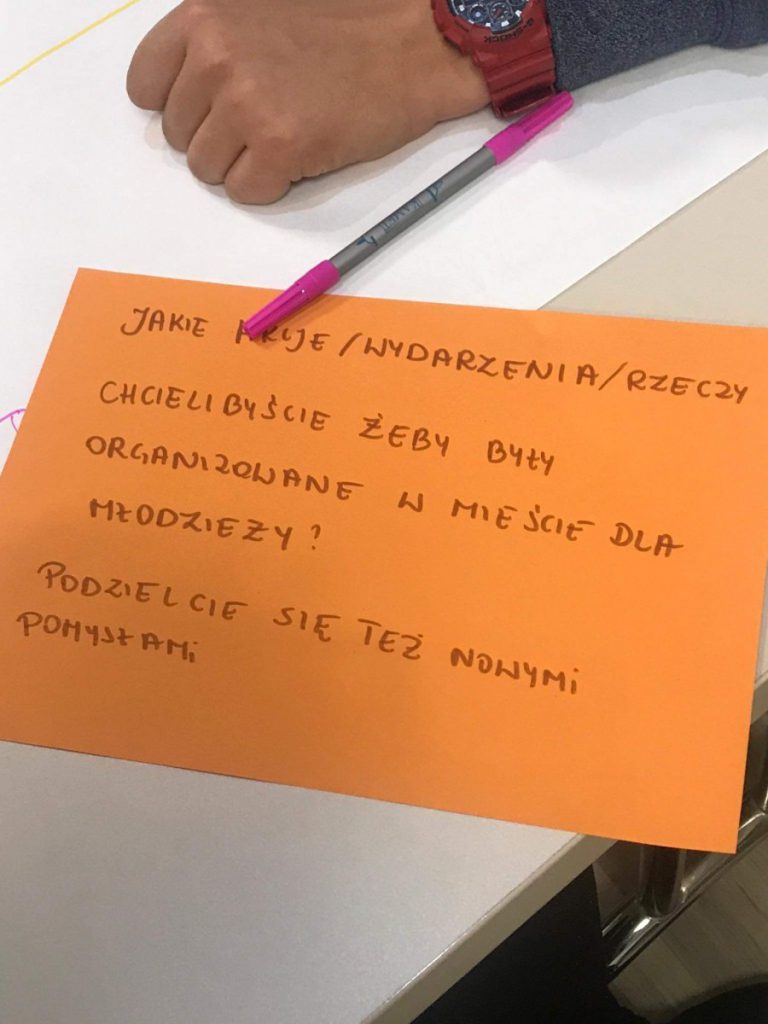 G-SHOCK
JAKIE AKCJE/WYDARZENIA/RZECZY
CHCIELIBYŚCIE ŻEBY BYŁY
ORGANIZOWANE W MIEŚCIE DLA
MŁODZIEŻY?
PODZIELCIE SIĘ TEŻ NOWYMI
POMYSŁAMI